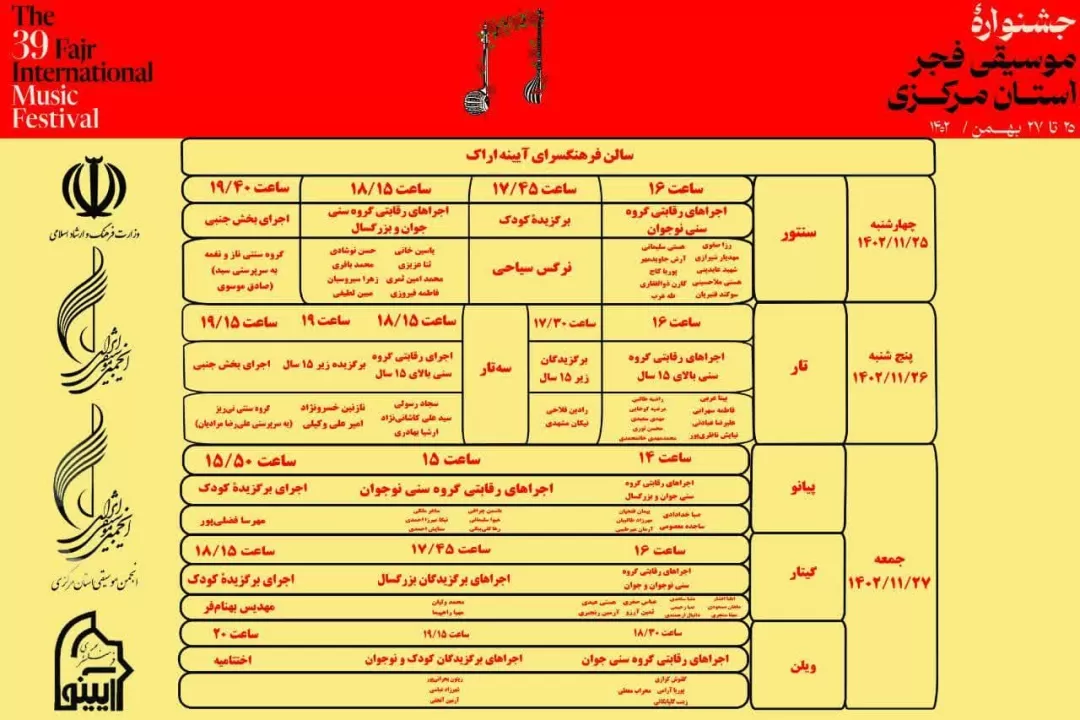 The
39 Fajr
International
Music
Festival
جشنوارهٔ
موسیقی فجر
استان مرکزی
۲۵ تا ۲۷ بهمن / ۱۴۰۲
وزارت فرهنگ و ارشاد اسلامی
انجمن موسیقی ایران
انجمن موسیقی ایران
انجمن موسیقی استان مرکزی
آیینه
سالن فرهنگسرای آیینه اراک
چهارشنبه
۱۴۰۲/۱۱/۲۵
سنتور
ساعت ۱۶
ساعت ۱۷/۴۵
ساعت ۱۸/۱۵
ساعت ۱۹/۴۰
اجراهای رقابتی گروه
سنی نوجوان
برگزیدهٔ کودک
اجراهای رقابتی گروه سنی
جوان و بزرگسال
اجرای بخش جنبی
رزا صفوی
هستی سلیمانی
مهدیار شیرازی
آرش جاویدمهر
شهید عابدینی
پوریا کاج
هستی ملاحسینی
کارن ذوالفقاری
سوگند قنبریان
طه عرب
نرگس سیاحی
یاسین خانی
حسن نوشادی
ثنا عزیزی
محمد باقری
محمد امین ثمری
زهرا سیروسیان
فاطمه فیروزی
مبین لطیفی
گروه سنتی ناز و نغمه
به سرپرستی سید)
(صادق موسوی
پنج شنبه
۱۴۰۲/۱۱/۲۶
تار
ساعت ۱۶
ساعت ۱۷/۳۰
سه‌تار
ساعت ۱۸/۱۵
ساعت ۱۹
ساعت ۱۹/۱۵
اجراهای رقابتی گروه
سنی بالای ۱۵ سال
برگزیدگان
زیر ۱۵ سال
اجرای رقابتی گروه
سنی بالای ۱۵ سال
برگزیده زیر ۱۵ سال
اجرای بخش جنبی
بیتا عربی
راضیه طالبی
فاطمه سهرابی
مرضیه کوخایی
علیرضا عبادتی
مهدی سعیدی
نیایش ناظری‌پور
محسن نوری
محمدمهدی خانمحمدی
رادین فلاحی
نیکان مشهدی
سجاد رسولی
سید علی کاشانی‌نژاد
ارشیا بهادری
نازنین خسرونژاد
امیر علی وکیلی
گروه سنتی نی‌ریز
(به سرپرستی علی‌رضا مرادیان)
جمعه
۱۴۰۲/۱۱/۲۷
پیانو
ساعت ۱۴
ساعت ۱۵
ساعت ۱۵/۵۰
اجراهای رقابتی گروه
سنی جوان و بزرگسال
اجراهای رقابتی گروه سنی نوجوان
اجرای برگزیدهٔ کودک
صبا خدادادی
پیمان فتحیان
ساجده معصومی
مهرزاد طالبیان
یاسمن چراغی
ساغر ملکی
هیوا سلیمانی
نیکا میرزااحمدی
ستایش احمدی
مهرسا فضلی‌پور
گیتار
ساعت ۱۶
ساعت ۱۷/۴۵
ساعت ۱۸/۱۵
اجراهای رقابتی گروه
سنی نوجوان و جوان
اجراهای برگزیدگان بزرگسال
اجرای برگزیدهٔ کودک
عباس صفری
هستی عبدی
آرسین رنجبری
محمد ولیان
مهدیس بهنام‌فر
ویلن
ساعت ۱۸/۳۰
ساعت ۱۹/۱۵
ساعت ۲۰
اجراهای رقابتی گروه سنی جوان
اجراهای برگزیدگان کودک و نوجوان
اختتامیه
گلنوش گزاری
پوریا آرامی
محراب مغفلی
زینب گلپایگانی
شهرزاد عباسی